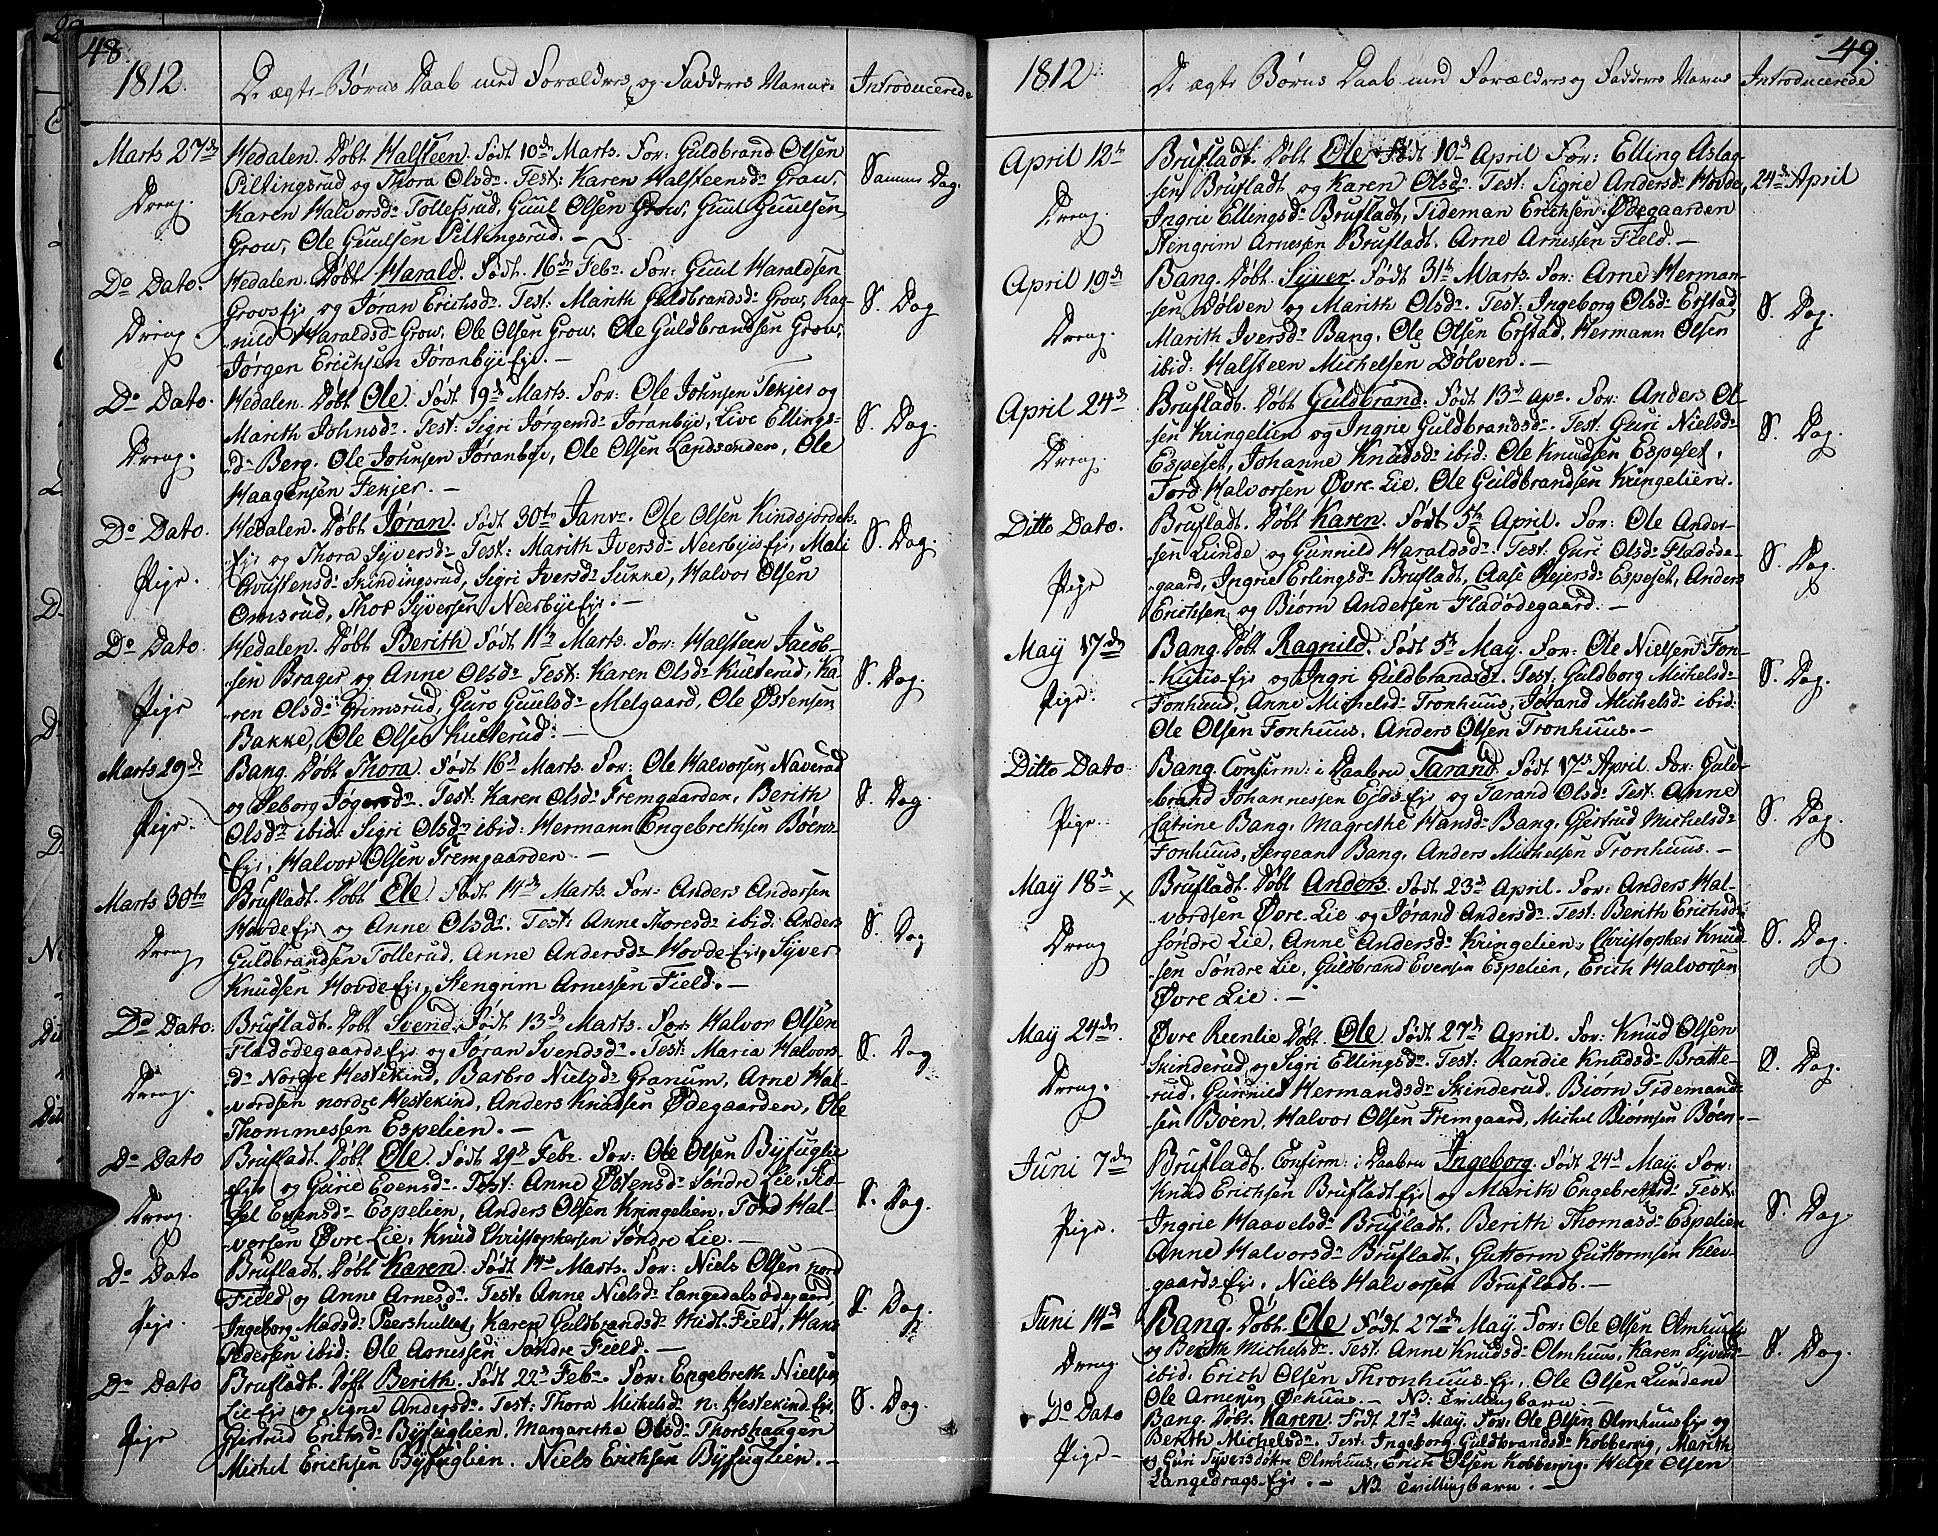 48.
1812.
De ægte Børns Daab med Forældres og Fadderes Navne.
Introducerede
Marts 27de
Dreng.
Hedalen. Døbt Halsteen. Født 10de Marts. For: Guldbrand Olsen
Piltingsrud og Thora Olsdr. Test: Karen Halsteensdr Grow,
Karen Halvorsdr Tollefsrud, Guul Olsen Grow, Guul Guulsen
Grow, Ole Guulsen Piltingsrud. -
Samme Dag.
Do Dato.
Dreng
Hedalen. Døbt Harald. Født 16de Febr. For: Guul Haraldsen
Grows Eje og Jøran Erichsdr. Test: Marith Guldbrandsdr Grow, Rag-
nild Haraldsdr Grow, Ole Olsen Grow, Ole Guldbrandsen Grow,
Jørgen Erichsen Jøranbye Eje. -
S. Dag
Do Dato.
Dreng.
Hedalen. Døbt Ole. Født 19de Marts. For: Ole Johnsen Fekjer og
Marith Johnsdr. Test: Sigri Jørgensdr Jøranbye, Live Ellings-
dr Berg. Ole Johnsen Jøranbye, Ole Olsen Landsenden, Ole
Haagensen Fekjer. -
S. Dag.
Do Dato.
Pige.
Hedalen. Døbt Jøran. Født 30te Janv. Ole Olsen Kindsjordets-
Eje og Thora Syversdr Test: Marith Iversdr Neerbyis Eje, Mali
Christensdr Skindingsrud, Sigri Iversdr Sukke, Halvor Olsen
Omsrud, Thor Syversen Neerbye Eje. -
S. Dag.
Do Dato
Pige
Hedalen. Døbt Berith. Født 11te Marts. For: Halsteen Jacob-
sen Brager og Anne Olsdr Test: Karen Olsdr Kulterud, Ka-
ren Olsdr Grimsrud, Guro Guulsdr Melgaard, Ole Østensen
Bakke, Ole Olsen Kulterud. -
S. Dag.
Marts 29de
Pige.
Bang. Døbt Thora. Født 16de Marts. For: Ole Halvorsen Naverud
og Seborg Test: Karen Olsdr Fremgaarden, Berith
Olsdr ibid: Sigri Olsdr ibid: Hermann Engebrethsen Bøens
Eje, Halvor Olsen Fremgaarden. -
S. Dag.
Marts 30te
Dreng
Brufladt. Døbt Ole. Født 14de Marts. For: Anders Andersen
Hovde Eje og Anne Olsdr. Test: Anne Thoresdr ibid: Anders
Guldbrandsen Tollerud, Anne Andersdr Hovde Eje, Syver
Knudsen Hovde Eje, Stengrim Arnessen Field. -
S. Dag
Do Dato.
Dreng.
Brufladt. Døbt Svend. Født 13de Marts. For: Halvor Olsen
Fladødegaards Eje og Jøran Svendsdr. Test: Maria Halvors-
dr Nordre Hestekind, Barbro Nielsdr Granum, Arne Hal-
vordsen nordre Hestekind, Anders Knudsen Ødegaarden, Ole
Thommessen Espelien. -
S. Dag
Do Dato
Dreng.
Brufladt. Døbt Ole. Født 29de Febr. For: Ole Olsen Byfuglie
Eje og Gurie Evensdr. Test: Anne Østensdr Søndre Lie,
Evensdr Espelien, Anders Olsen Kringelien, Tord Hal-
vorsen Øvre Lie, Knud Christophersen Søndre Lie. -
S. Dag.
Do Dato
Pige.
Brufladt. Døbt Karen. Født 14de Marts. For: Niels Olsen nord
Field og Anne Arnesdr. Test: Anne Nielsdr Langedalsødegaard,
Ingeborg Madsdr Peershullet, Karen Guldbrandsdr Midt-Field, Hans
Pedersen ibid: Ole Arnessen Søndre Field. -
S. Dag.
Do Dato
Pige
Brufladt. Døbt Berith. Født 22de Febr. For: Engebreth Nielsen
Lie Eje og Signe Andersdr. Test: Thora Michelsdr n: Hestekind Eje,
Gjertrud Erichsdr Byfuglien, Margaretha Olsdr Thorshaugen
Michel Erichsen Byfuglien. Niels Erichsen Byfuglien. -
S. Dag.
49.
1812.
De ægte Børns Daab med Forældres og Fadderes Navne
Introducerede
April 12te
Dreng.
Brufladt. Døbt Ole Født 10de April For: Elling Aslag-
sen Brufladt og Karen Olsdr. Test: Sigrie Andersdr Hovde,
Ingrie Ellingsdr Brufladt, Tideman Erichsen Ødegaarden
Stengrim Arnessen Brufladt. Arne Arnessen Field. -
24de April
April 19de
Dreng.
Bang. Døbt Syver. Født 31te Marts. For: Arne Herman-
sen Dølven og Marith Olsdr. Test: Ingeborg Olsdr Erstad
Marith Iversdr Bang, Ole Olsen Erstad, Hermann Olsen
ibid: Halsteen Michelsen Dølven. -
S. Dag.
April 24de
Dreng.
Brufladt. Døbt Guldbrand. Født 13de Apr. For: Anders Ol-
sen Kringelien og Ingrie Guldbrandsdr. Test: Guri Nielsdr
Espeset, Johanne Knudsdr ibid: Ole Knudsen Espeset,
Tord Halvorsen Øvre Lie, Ole Guldbrandsen Kringelien.
S. Dag.
Ditto Dato.
Pige
Brufladt. Døbt Karen. Født 5te April. For: Ole Ander-
sen Lunde og Gunnild Haraldsdr. Test: Guri Olsdr Fladøde-
gaard, Ingrie Erlingsdr Brufladt, Aase Rejersdr Espeset, Anders
Erichsen og Biørn Andersen Fladødegaard. -
S. Dag.
May 17de
Pige.
Bang. Døbt Ragnild. Født 5te May. For: Ole Nielsen Fon-
huus-Eje og Ingri Guldbrandsdr. Test: Guldborg Michelsdr
Fonhuus, Anne Michelsdr Tronhuus, Jørand Michelsdr ibid:
Ole Olsen Fonhuus, Anders Olsen Tronhuus. -
S. Dag.
Ditto Dato
Pige.
Bang. Confirm: i Daaben Tarand. Født 17de April. For: Guld-
brand Johannessen Ejds-Eje og Tarand Olsdr Test: Anne
Catrine Bang, Magrethe Hansdr Bang, Gjertrud Michelsdr
Fonhuus, Sergeant Bang, Anders Michelsen Tronhuus. -
S. Dag.
May 18de ×
Dreng
Brufladt. Døbt Anders. Født 23de April. For: Anders Hal-
vordsen Øvre Lie og Jørand Andersdr. Test: Berith Erichsdr
søndre Lie, Anne Andersdr Kringelien, Christopher Knud-
sen Søndre Lie, Guldbrand Evensen Espelien, Erich Halvorsen
Øvre Lie. -
S. Dag.
May 24de.
Dreng.
Øvre Reenlie Døbt. Ole. Født 27de April. For: Knud Olsen
Skinderud og Sigri Ellingsdr. Test: Randie Knudsdr Bratte-
rud, Gunnild Hermandsdr Skinderud, Biørn Tidemand-
sen Bøen, Halvor Olsen Fremgaard, Michel Biørnsen Bøen. -
S. Dag.
Juni 7de
Pige.
Brufladt. Confirm: i Daaben Ingeborg. Født 24de May. For:
Knud Erichsen Brufladt-Eje og Marith Engebrethsdr Test:
Ingrie Haavelsdr Brufladt, Berith Thomasdr Espelien
Anne Halvorsdr Brufladt, Guttorm Guttormsen Klev-
gaards-Eje, Niels Halvorsen Brufladt. -
S. Dag.
Juni 14de
Dreng
Bang. Døbt. Ole Født 27de May. For: Ole Olsen Olmhuus Eje
og Berith Michelsdr. Test: Anne Knudsdr Olmhuus, Karen Syversdr
ibid: Erich Olsen Thronhuus Eje, Ole Olsen Lundene
Ole Arnesen - NB. Tvillingbarn. -
S. Dag.
Do Dato
Pige -
Bang. Døbt. Karen. Født 27de May. For: Ole Olsen Olmhuus Eje og
Berith Michelsdr. Test: Ingeborg Guldbrandsdr Kobbervig, Marith
og Guri Syversdøtre Olmhuus, Erich Olsen Kobbervig. Helge Olsen
Langedrags-Eje. - NB. Tvillingbarn. -